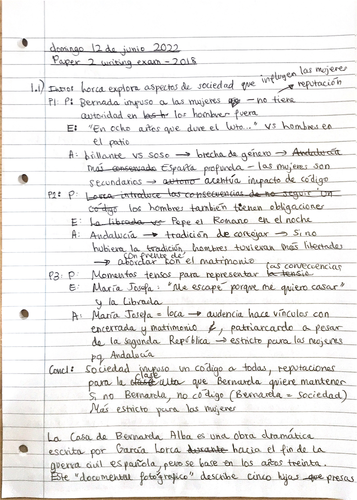 domingo 12 de junio 2022
Paper 2 writing exam - 2018
1.1) Intro: Lorca explora aspectos de sociedad que influyen las mujeres
→ reputación
P1: P: Bernada impuso a las mujeres - no tiene
autoridad en los hombres fuera
E: "En ocho años que dure el luto..." vs hombres en
el patio
A: brillante vs soso → brecha de género → Andalucía
más conservado España profunda - las mujeres son
secundarios → acentúa impacto de código
P2: P: Lorca introduce las consecuencias de no seguir un
código los hombres también tienen obligaciones
E: La librada vs Pepe el Romano en el noche
A: Andalucía → tradición de cortejar → si no
hubiera la tradición, hombres tuvieran más libertades
→ abordar con el matrimonio
con frente de
P3: P: Momentos tensos para representar la tensión
las consecuencias
E: María Josefa: "Me escapé porque me quiero casar"
y la Librada
A: María Josefa = loca → audencia hace vínculos con
encerrada y matrimonio, patriarcardo a pesar
de la segunda República → estricto para las mujeres
pq Andalucía
Concl: Sociedad impuso un código a todas, reputaciones
para la clase alta que Bernarda quiere mantener
Si no Bernarda, no código (Bernarda = sociedad)
Más estricto para las mujeres
La Casa de Bernarda Alba es una obra dramática
escrita por García Lorca durante hacia el fin de la
guerra civil española, pero se base en los años treinta.
Este "documental fotográfico" describe cinco hijas que presas